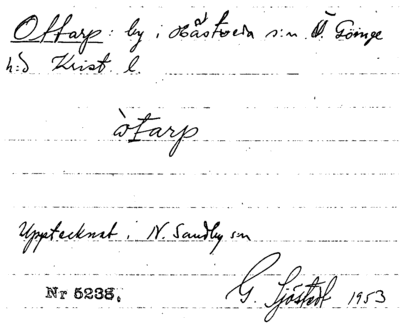 Ottarp: by i Hästveda s:n Ö. Göinge
h:d Krist l.
òtarp
Upptecknat i N. Sandby sn
Nr 5238.
G. Sjöstedt 1953